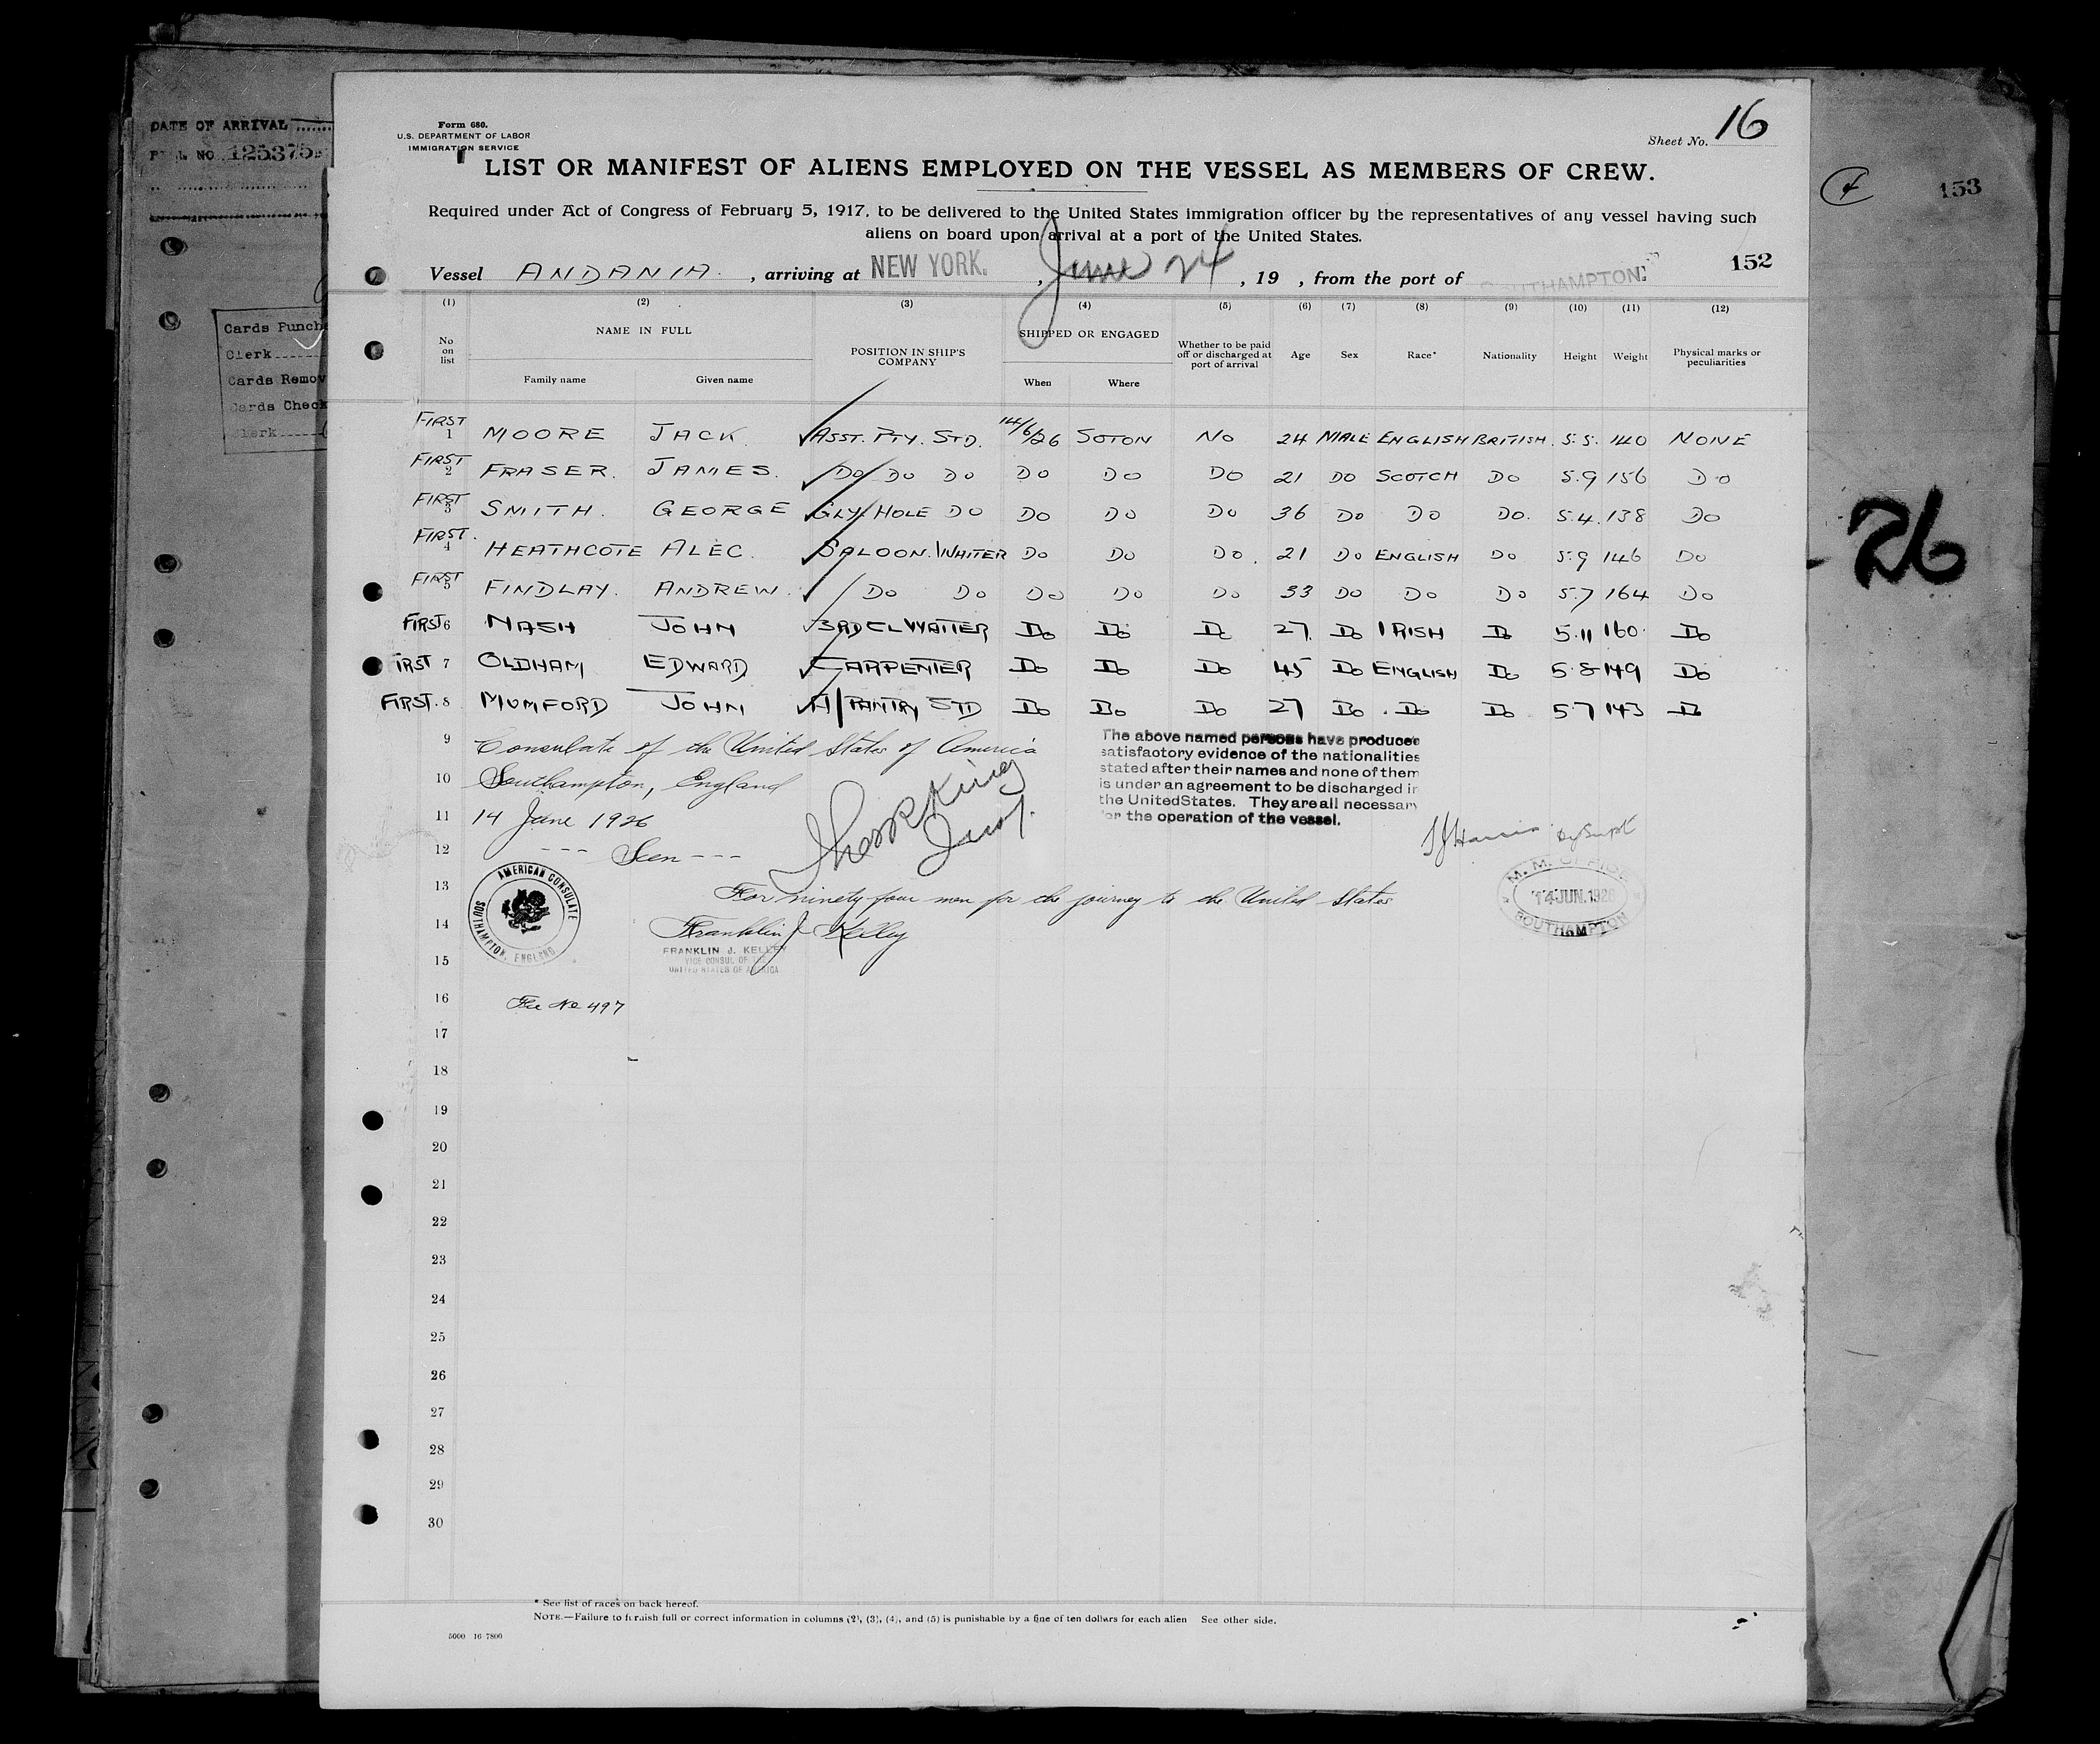 DATE OF ARRIVAL
NO 125375
Cards Punch
Clerk
Cards Remov
Cards Check
Clerk
153
26
Form 680.
U.S. DEPARTMENT OF LABOR
IMMIGRATION SERVICE
Sheet No. 16
LIST OR MANIFEST OF ALIENS EMPLOYED ON THE VESSEL AS MEMBERS OF CREW.
Required under Act of Congress of February 5, 1917, to be delivered to the United States immigration officer by the representatives of any vessel having such
aliens on board upon arrival at a port of the United States.
152
Vessel ANDANIA. , arriving at NEW YORK. , June 24 , 19 , from the port of SOUTHAMPTON.
(1) (2) (3) (4) (5) (6) (7) (8) (9) (10) (11) (12)
No on list NAME IN FULL Family name Given name POSITION IN SHIP'S COMPANY SHIPPED OR ENGAGED When Where Whether to be paid off or discharged at port of arrival Age Sex Race* Nationality Height Weight Physical marks or peculiarities
FIRST 1 MOORE JACK. ASST. PTY. STD. 14/6/26 SOTON NO 24 MALE ENGLISH BRITISH. 5.5. 140 NONE
FIRST 2 FRASER. JAMES. DO DO DO DO DO DO 21 DO SCOTCH DO 5.9 156 DO
FIRST 3 SMITH. GEORGE GLY HOLE DO DO DO DO 36 DO DO DO. 5.4. 138 DO
FIRST. 4 HEATHCOTE ALEC. SALOON. WAITER DO DO DO. 21 DO ENGLISH DO 5.9 146 DO
FIRST 5 FINDLAY. ANDREW. DO DO DO DO DO 33 DO DO DO 5.7 164 DO
FIRST 6 NASH JOHN 3RD CL WAITER Do Do Do 27 Do IRISH Do 5.11 160 Do
IRST 7 OLDHAM EDWARD CARPENTER Do Do Do 45 Do ENGLISH Do 5.8 149 Do
FIRST. 8 MUMFORD JOHN A/PANTRY STD Do Do Do 27 Do Do Do 5 7 143 Do
9 Consulate of the United States of America
10 Southampton, England
11 14 June 1926
12 --- Seen ---
The above named persons have produced
satisfactory evidence of the nationalities
stated after their names and none of them
is under an agreement to be discharged in
the United States. They are all necessary
for the operation of the vessel.
AMERICAN CONSULATE
SOUTHAMPTON, ENGLAND
M. M. OFFICE
14 JUN. 1926
SOUTHAMPTON
13 For ninety four men for the journey to the United States
14 Franklin J Kelley
FRANKLIN J. KELLEY
VICE CONSUL OF THE
UNITED STATES OF AMERICA
15
16 Fee No 497
17
18
19
20
21
22
23
24
25
26
27
28
29
30
* See list of races on back hereof.
NOTE.—Failure to furnish full or correct information in columns (2), (3), (4), and (5) is punishable by a fine of ten dollars for each alien See other side.
5000 16-7800